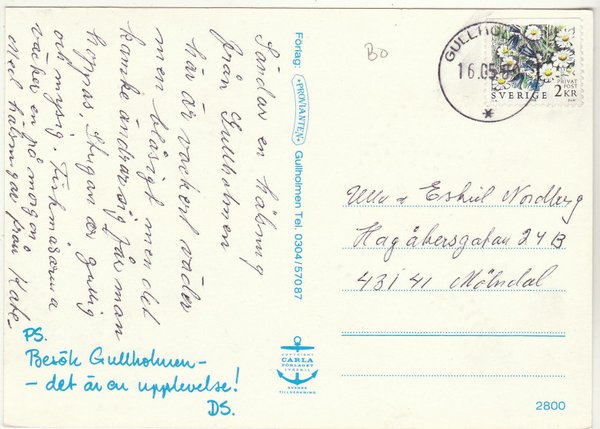 Sänder en hälsning
från Gullholmen
här är vackert väder
men blåsigt men det
kanske ändrar sig får man
hoppas, Stugan är gullig
och mysig. Fiskmåsarna
väcker en på morgon
Med hälsningar från
PS.
Besök Gullholmen -
- det är en upplevelse!
DS.
Förlag: PROVIANTEN Gullholmen Tel. 0304/57087
COPYRIGHT
CARLA
FÖRLAGET
LYSEKIL
SVENSK
TILLVERKNING
BO
GULLHOLM
16.05
PRIVAT
POST
SVERIGE 2KR
Ulla o Eskil Nordberg
Hagåkersgatan 24B
431 41 Mölndal
2800